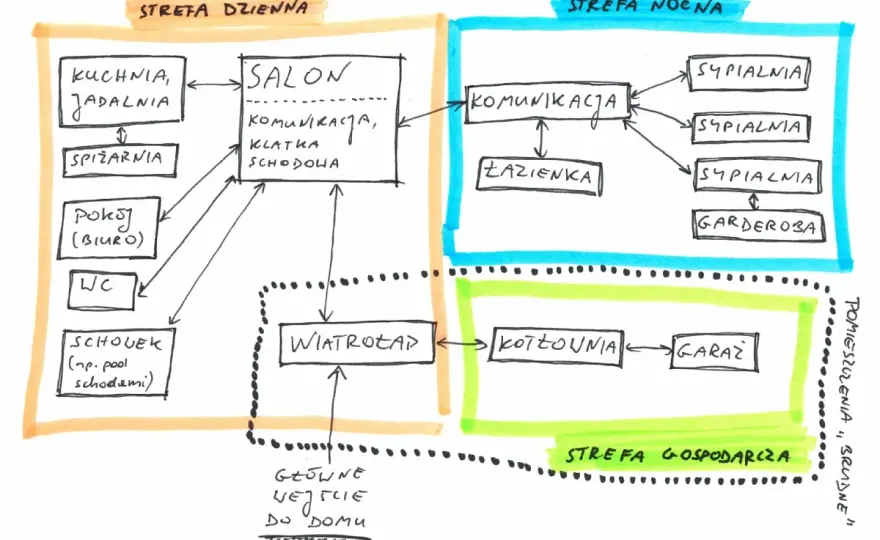 STREFA DZIENNA
KUCHNIA,
JADALNIA
SPIŻARNIA
POKÓJ
(BIURO)
WC
SCHOWEK
(np. pod
schodami)
SALON
KOMUNIKACJA,
KLATKA
SCHODOWA
WIATROŁAP
GŁÓWNE
WEJŚCIE
DO DOMU
STREFA NOCNA
KOMUNIKACJA
ŁAZIENKA
SYPIALNIA
SYPIALNIA
SYPIALNIA
GARDEROBA
KOTŁOWNIA
GARAŻ
STREFA GOSPODARCZA
POMIESZCZENIA „BRUDNE"